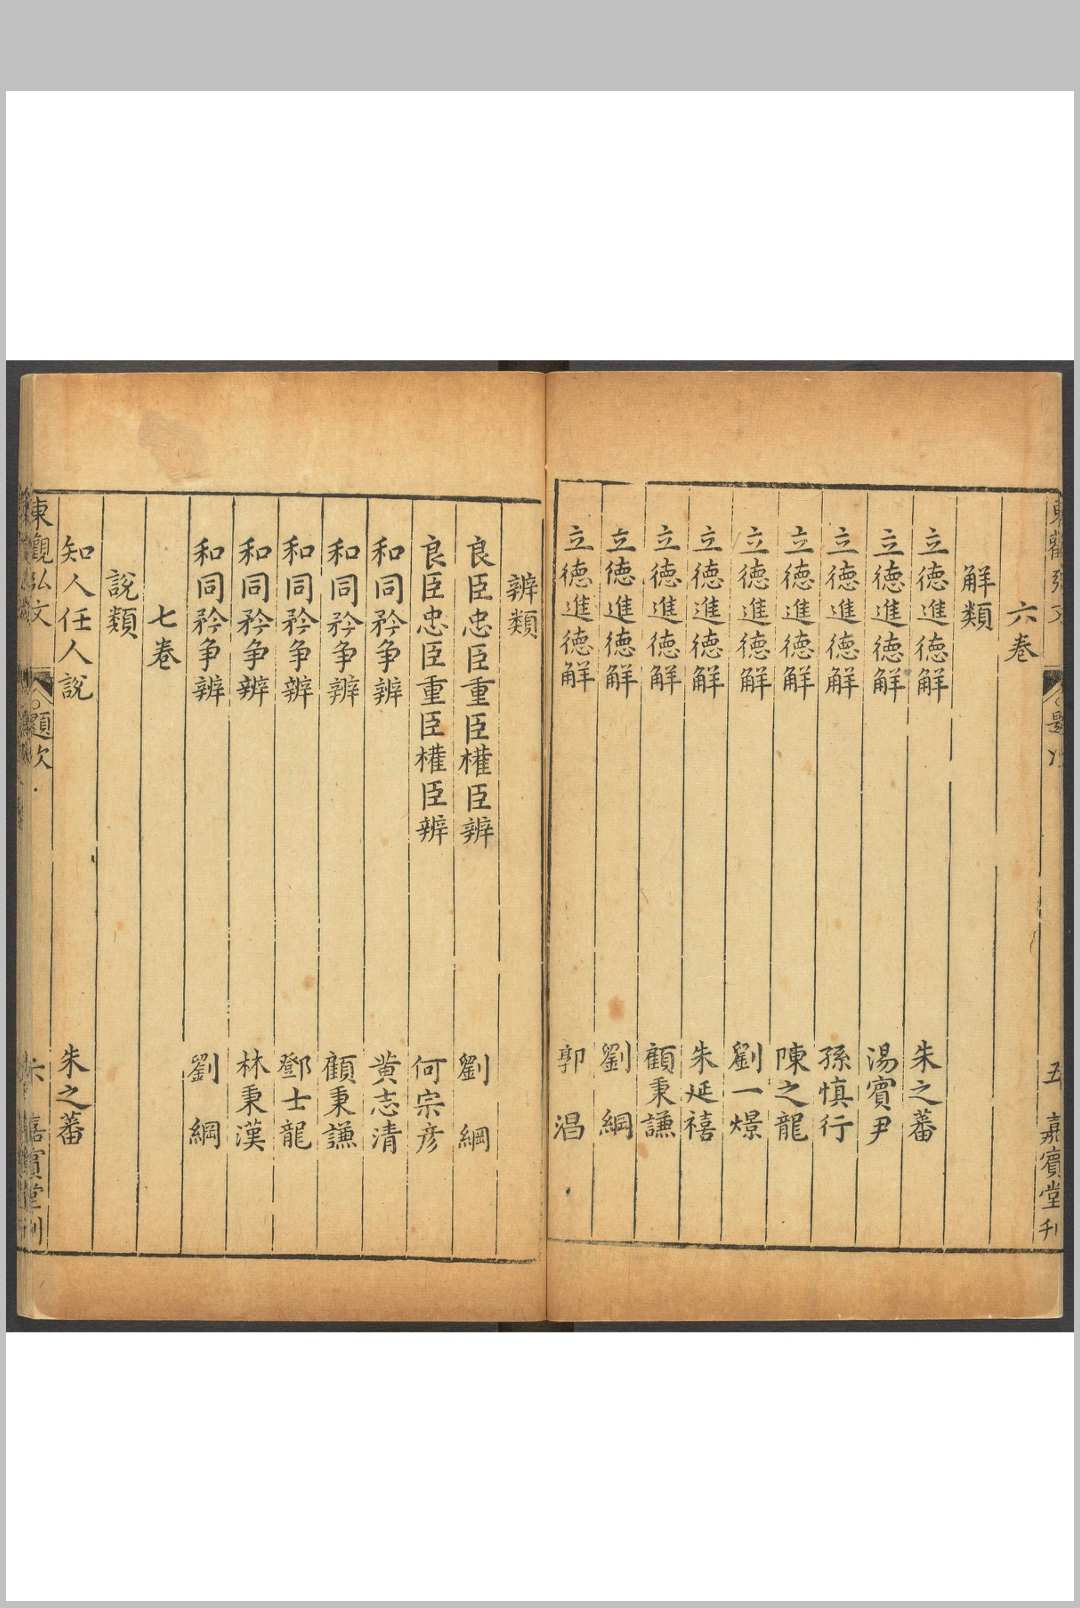 六卷
解類
立德進德解 朱之蕃
立德進德解 湯賓尹
立德進德解 孫慎行
立德進德解 陳之龍
立德進德解 劉一燝
立德進德解 朱延禧
立德進德解 顧秉謙
立德進德解 劉綱
立德進德解 郭淐
五 嘉賓堂刊
辨類
良臣忠臣重臣權臣辨 劉綱
良臣忠臣重臣權臣辨 何宗彥
和同矜争辨 黄志清
和同矜争辨 顧秉謙
和同矜争辨 鄧士龍
和同矜争辨 林秉漢
和同矜争辨 劉綱
七卷
說類
知人任人說 朱之蕃
東觀弘文 題次 六 嘉賓堂刊